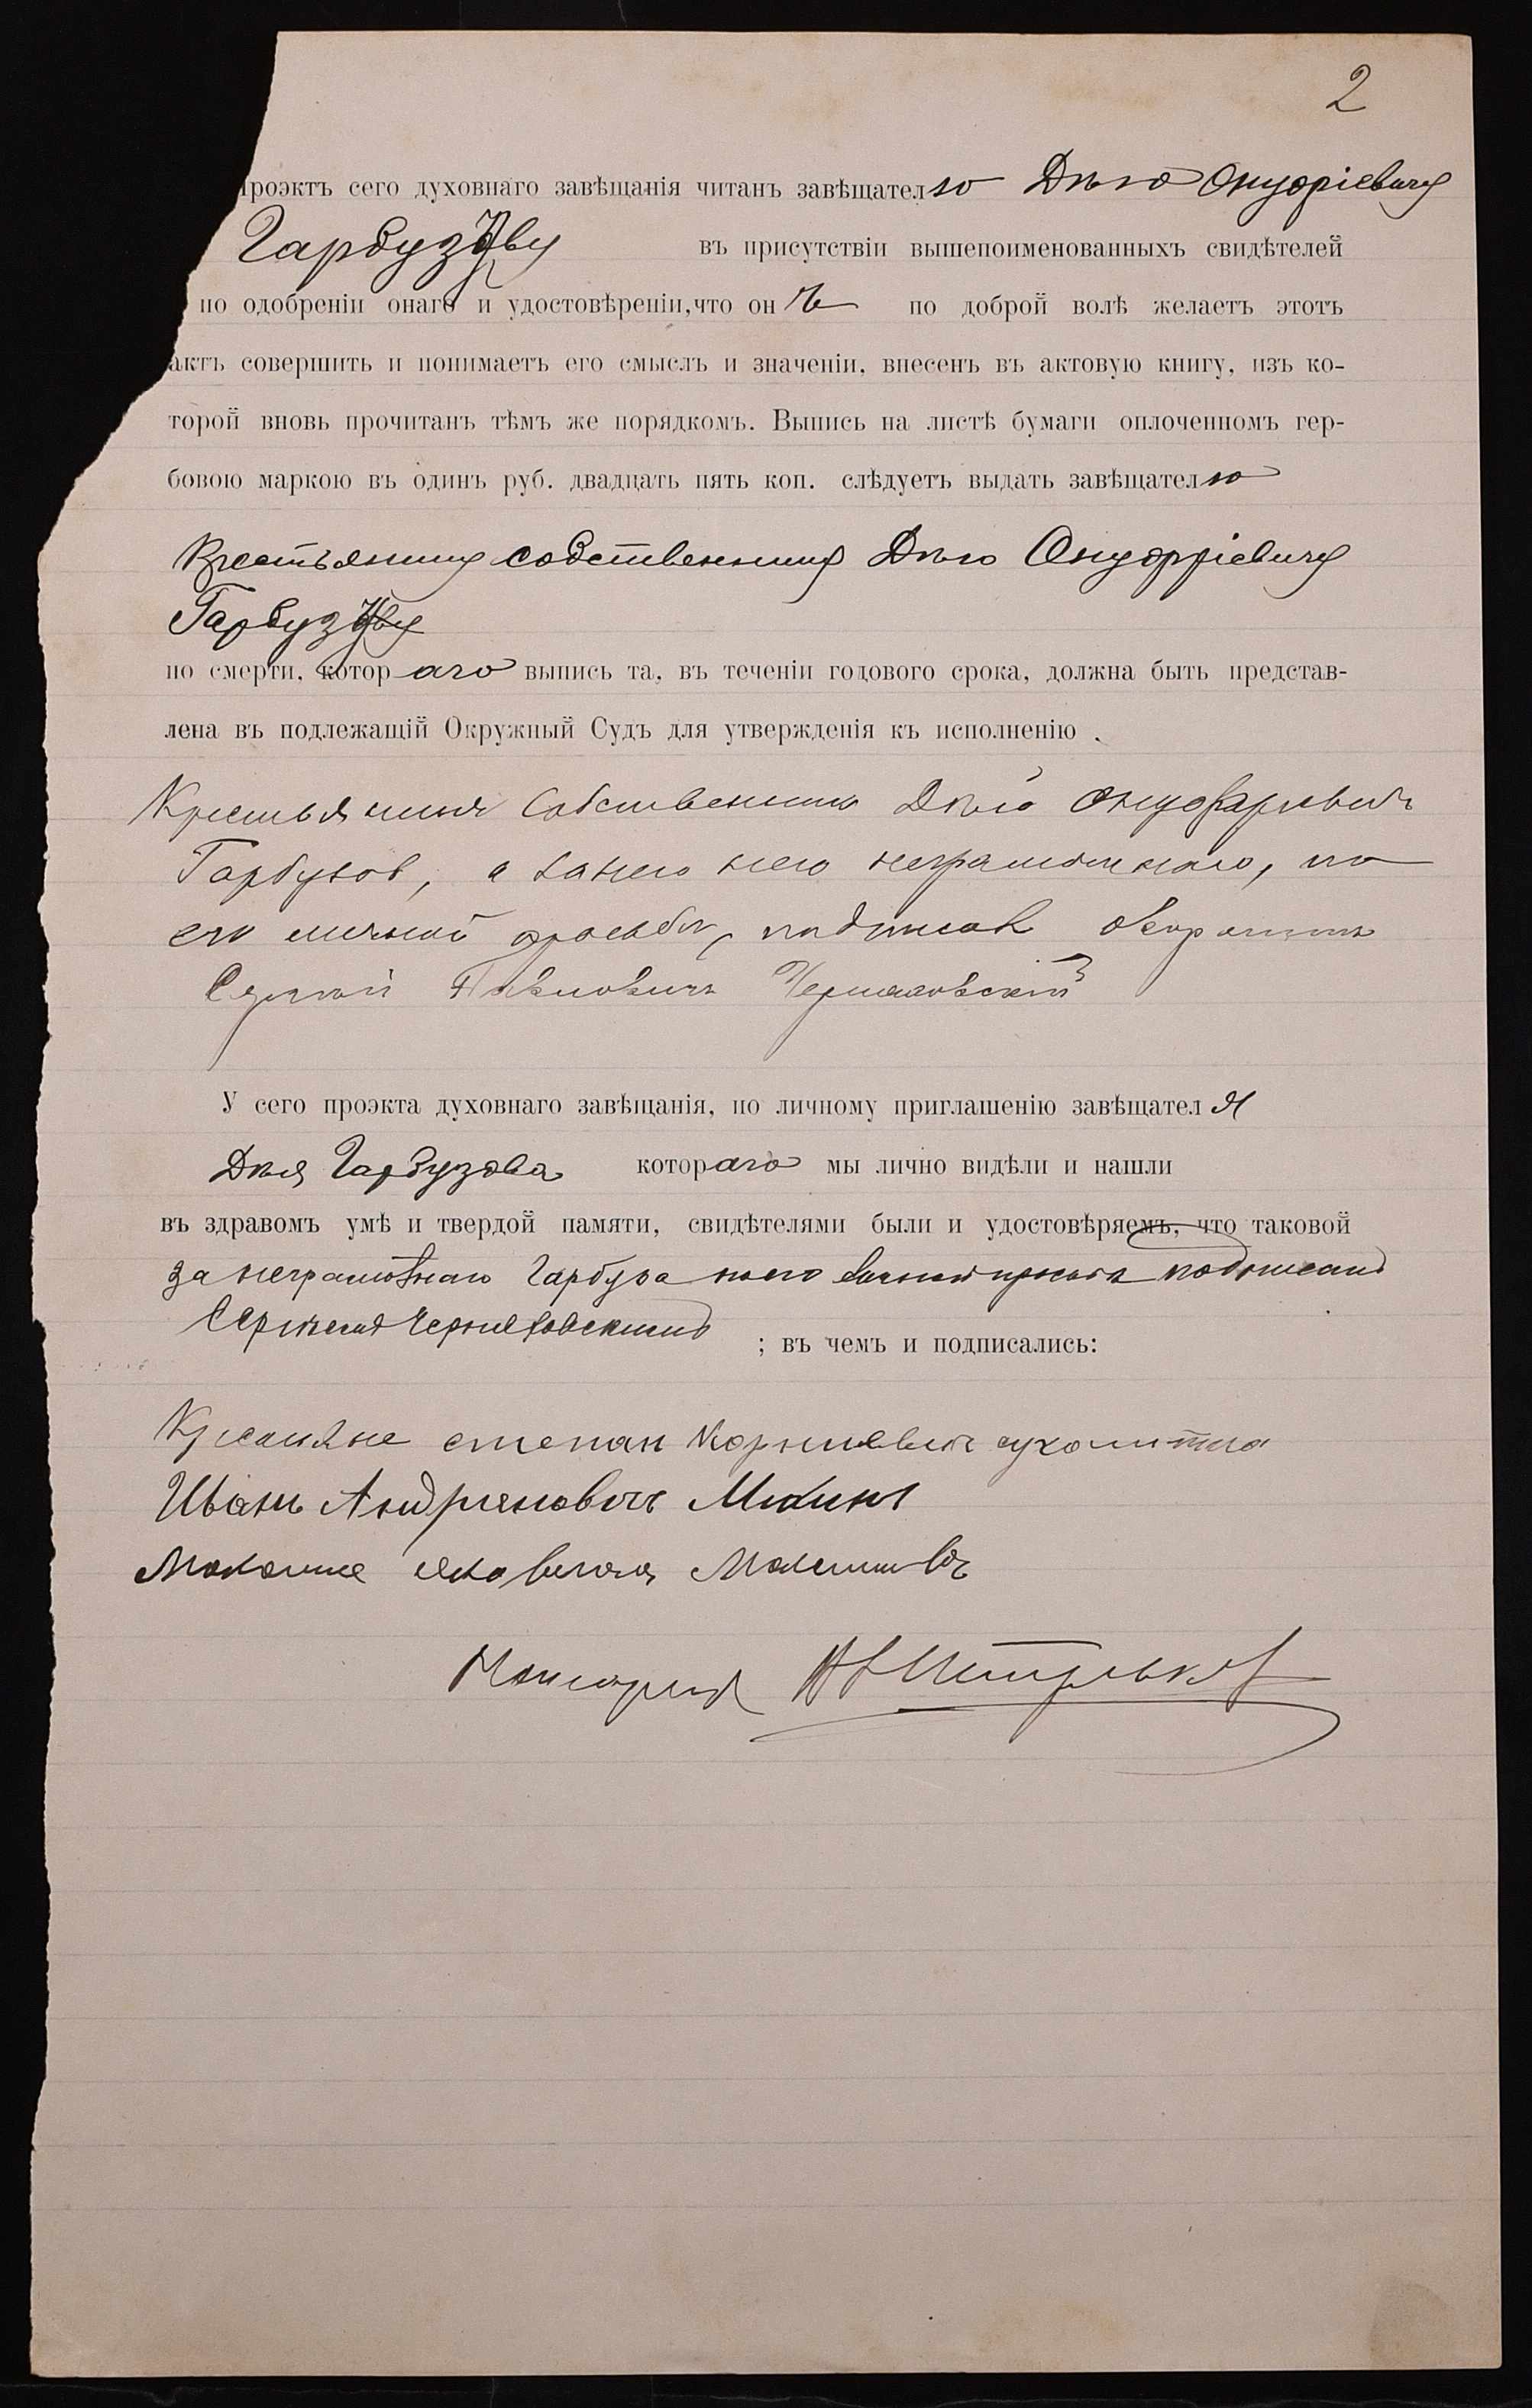 2
проэктъ сего духовнаго завѣщанія читанъ завѣщателю Дѣю Онуфріевичу
Гарбузову въ присутствіи вышепоименованныхъ свидѣтелей
по одобреніи онаго и удостовѣреніи, что онъ по доброй волѣ желаетъ этотъ
актъ совершить и понимаетъ его смыслъ и значеніи, внесенъ въ актовую книгу, изъ ко-
торой вновь прочитанъ тѣмъ же порядкомъ. Выпись на листѣ бумаги оплоченномъ гер-
бовою маркою въ одинъ руб. двадцать пять коп. слѣдуетъ выдать завѣщателю
Крестьянину собственнику Дѣю Онуфріевичу
Гарбузову
по смерти, котораго выпись та, въ теченіи годового срока, должна быть представ-
лена въ подлежащій Окружный Судъ для утвержденія къ исполненію.
Крестьянинъ Собственникъ Дѣй
Гарбузов, а неграмотнаго, по
его личной просьбѣ,
Павловичъ Черняховскій
У сего проэкта духовнаго завѣщанія, по личному приглашенію завѣщателя
Дѣя Гарбузова котораго мы лично видѣли и нашли
въ здравомъ умѣ и твердой памяти, свидѣтелями были и удостовѣряемъ, что таковой
за неграмотнаго Гарбуза подписанъ
Сергѣемъ Черняховскимъ ; въ чемъ и подписались:
Крестьяне степан Корниевич
Иванъ Андриановичъ
Нотаріусъ